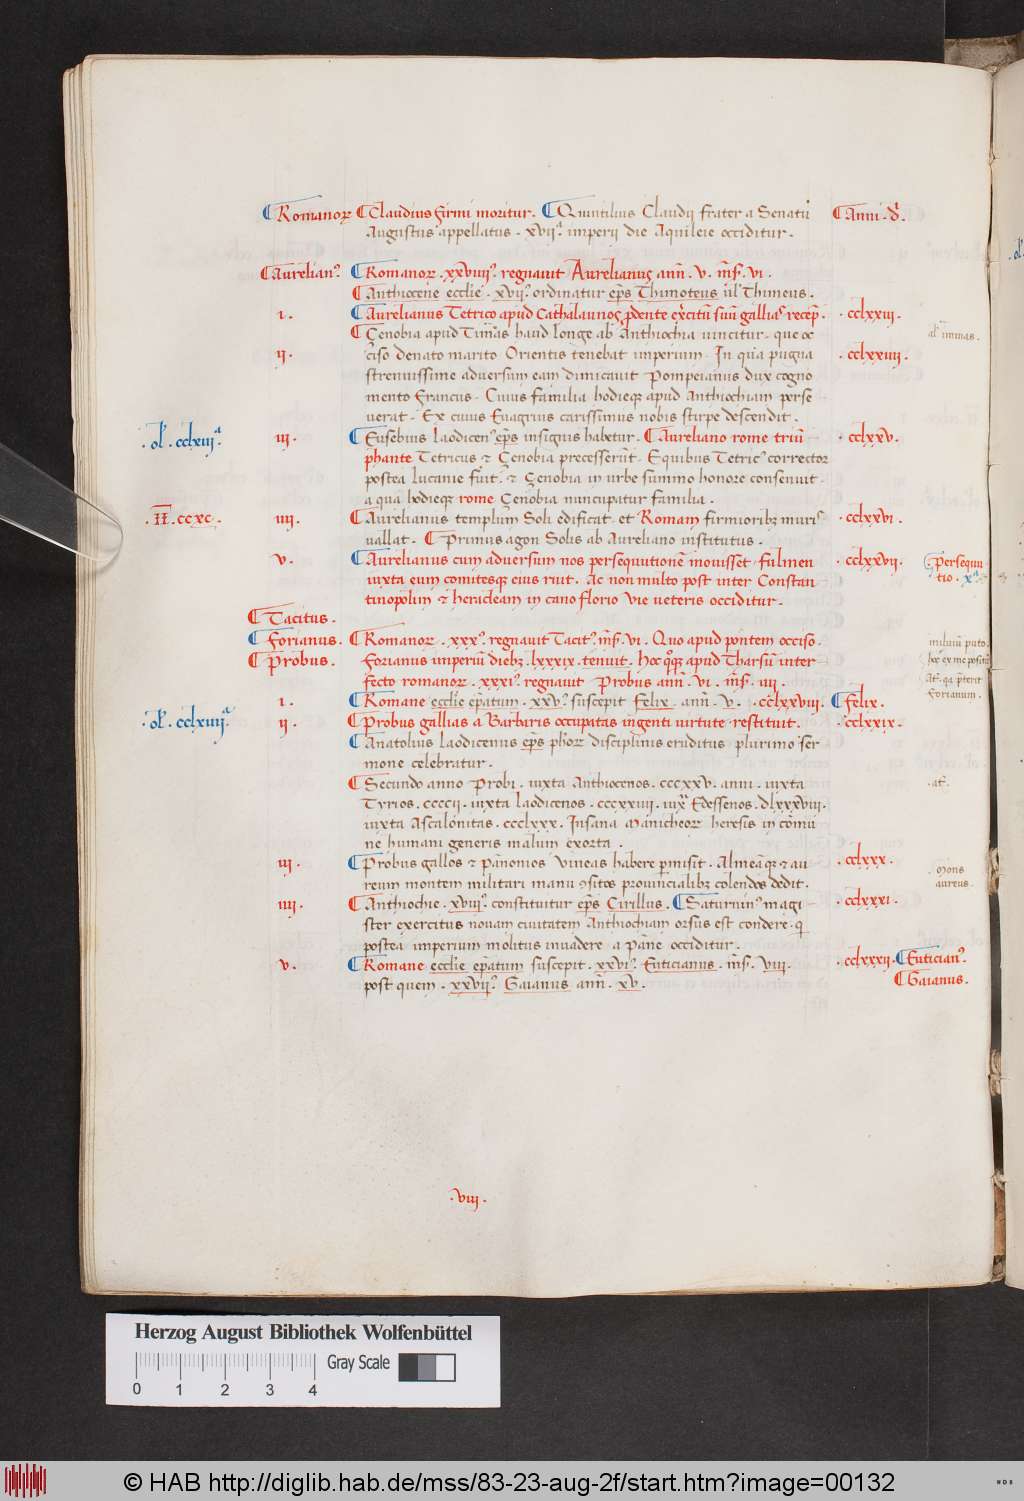 Romanoꝝ Claudius Sirmi moritur. Quintilius Claudii frater a Senatu Anni. d.
Augustus appellatus. xvii.ª imperii die Aquileie occiditur.
Aurelian⁹. Romanoꝝ. xxviiii.⁹ regnavit Aurelianus anñ. v. mẽs. vi.
Anthiocene ecclie. xvii.⁹ ordinatur ep̃s Thimoteus ul̃ Thimeus.
i. Aurelianus Tetrico apud Cathalaunos p̃dente exercitũ suũ gallias recep̃. cclxxiii.
Cenobia apud Timas haud longe ab Anthiochia vincitur. que oc al. immas.
ii. ciso denato marito Orientis tenebat imperium. In qua pugna cclxxiiii.
strenuissime adversum eam dimicavit Pompeianus dux cogno
mento francus. Cuius familia hodieqꝫ apud Anthiochiam perse
verat. Ex cuius Evagrius carissimus nobis stirpe descendit.
ol. cclxiii.ª iii. Eusebius laodicen⁹ ep̃s insignis habetur. Aureliano rome triũ cclxxv.
phante Tetricus ⁊ Cenobia precesserũt. Equibus Tetric⁹ corrector
postea lucanie fuit. ⁊ Cenobia in urbe summo honore consenuit.
a qua hodieqꝫ rome Cenobia nuncupatur familia.
II. ccxc. iiii. Aurelianus templum Soli edificat et Romam firmioribꝫ muris cclxxvi.
vallat. Primus agon Solis ab Aureliano institutus.
v. Aurelianus cum adversum nos persequutionẽ movisset fulmen cclxxvii. Persequu
iuxta eum comitesqꝫ eius ruit. Ac non multo post inter Constan tio. ixª
tinopolim ⁊ heracleam in cano florio vie veteris occiditur.
Tacitus.
forianus. Romanoꝝ. xxx.⁹ regnavit Tacit⁹ mẽs. vi. Quo apud pontem occiso.
Probus. florianus imperiũ diebꝫ. lxxxix. tenuit. Hoc qꝫ apud Tharsũ inter
fecto romanoꝝ. xxxi.⁹ regnavit Probus anñ. vi. mẽs. iiii.
i. Romane ecclie ep̃atum. xxv.⁹ suscepit felix anñ. v. cclxxviii. felix.
ol. cclxiiii.ª ii. Probus gallias a Barbaris occupatas ingenti virtute restituit. cclxxix.
Anatolius laodicenus ep̃s ph̃orꝝ disciplinis eruditus plurimo ser
mone celebratur.
Secundo anno Probi. iuxta Anthiocenos. cccxxv. anni. iuxta
Tyrios. ccccii. iuxta laodicenos. cccxxiiii. iux Edessenos. dlxxxviii.
iuxta Ascalonitas. ccclxxx. Insana Manicheoꝝ heresis in cõmu
ne humani generis malum exorta.
iii. Probus gallos ⁊ pãnonios vineas habere p̃misit. Almeãqꝫ ⁊ au cclxxx. Mons
reum montem militari manu ꝯsitos provincialibꝫ colendos dedit. aureus.
iiii. Anthiochie. xviii.⁹ constituitur ep̃s Cirillus. Saturnin⁹ magi cclxxxi.
ster exercitus novam civitatem Anthiochiam orsus est condere. q̃
postea imperium molitus invadere. a pãne occiditur.
v. Romane ecclie ep̃atum suscepit. xxvi.⁹ Euticianus. mẽs. viii. cclxxxii. Eutician⁹.
post quem. xxvii.⁹ Gaianus anñ. xv. Gaianus.
viii.
Herzog August Bibliothek Wolfenbüttel
Gray Scale
0 1 2 3 4
© HAB http://diglib.hab.de/mss/83-23-aug-2f/start.htm?image=00132